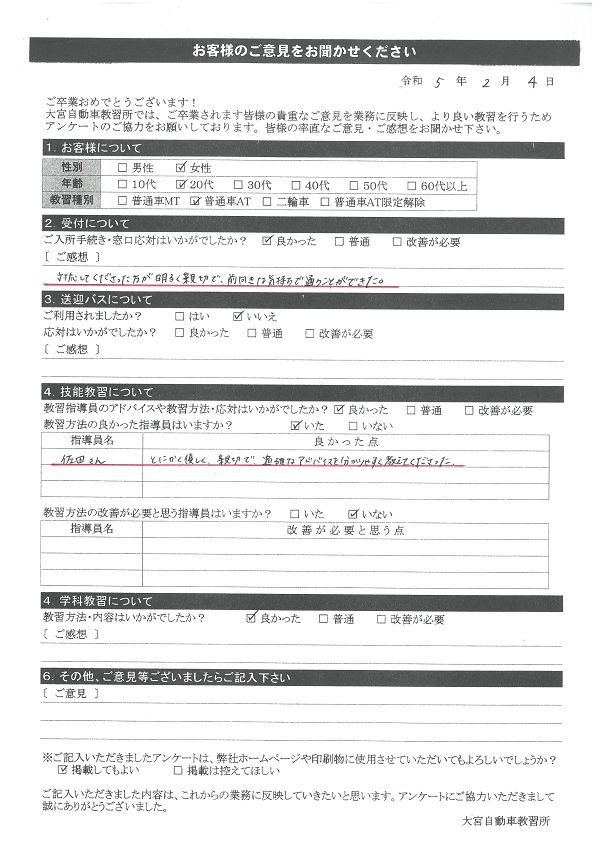 お客様のご意見をお聞かせください
令和 5 年 2 月 4 日
ご卒業おめでとうございます！
大宮自動車教習所では、ご卒業されます皆様の貴重なご意見を業務に反映し、より良い教習を行うため
アンケートのご協力をお願いしております。皆様の率直なご意見・ご感想をお聞かせ下さい。
1. お客様について
性別 □ 男性 ☑ 女性
年齢 □ 10代 ☑ 20代 □ 30代 □ 40代 □ 50代 □ 60代以上
教習種別 □ 普通車MT ☑ 普通車AT □ 二輪車 □ 普通車AT限定解除
2. 受付について
ご入所手続き・窓口応対はいかがでしたか？ ☑ 良かった □ 普通 □ 改善が必要
〔 ご感想 〕
対応してくださった方が明るく親切で、前向きな気持ちで通うことができた。
3. 送迎バスについて
ご利用されましたか？ □ はい ☑ いいえ
応対はいかがでしたか？ □ 良かった □ 普通 □ 改善が必要
〔 ご感想 〕
4. 技能教習について
教習指導員のアドバイスや教習方法・応対はいかがでしたか？ ☑ 良かった □ 普通 □ 改善が必要
教習方法の良かった指導員はいますか？ ☑ いた □ いない
指導員名 良かった点
佐田さん とにかく優しく、親切で、適確なアドバイスを分かりやすく教えてくださった。
教習方法の改善が必要と思う指導員はいますか？ □ いた ☑ いない
指導員名 改善が必要と思う点
4. 学科教習について
教習方法・内容はいかがでしたか？ ☑ 良かった □ 普通 □ 改善が必要
〔 ご感想 〕
6. その他、ご意見等ございましたらご記入下さい
〔 ご意見 〕
※ご記入いただきましたアンケートは、弊社ホームページや印刷物に使用させていただいてもよろしいでしょうか？
☑ 掲載してもよい □ 掲載は控えてほしい
ご記入いただきました内容は、これからの業務に反映していきたいと思います。アンケートにご協力いただきまして
誠にありがとうございました。
大宮自動車教習所